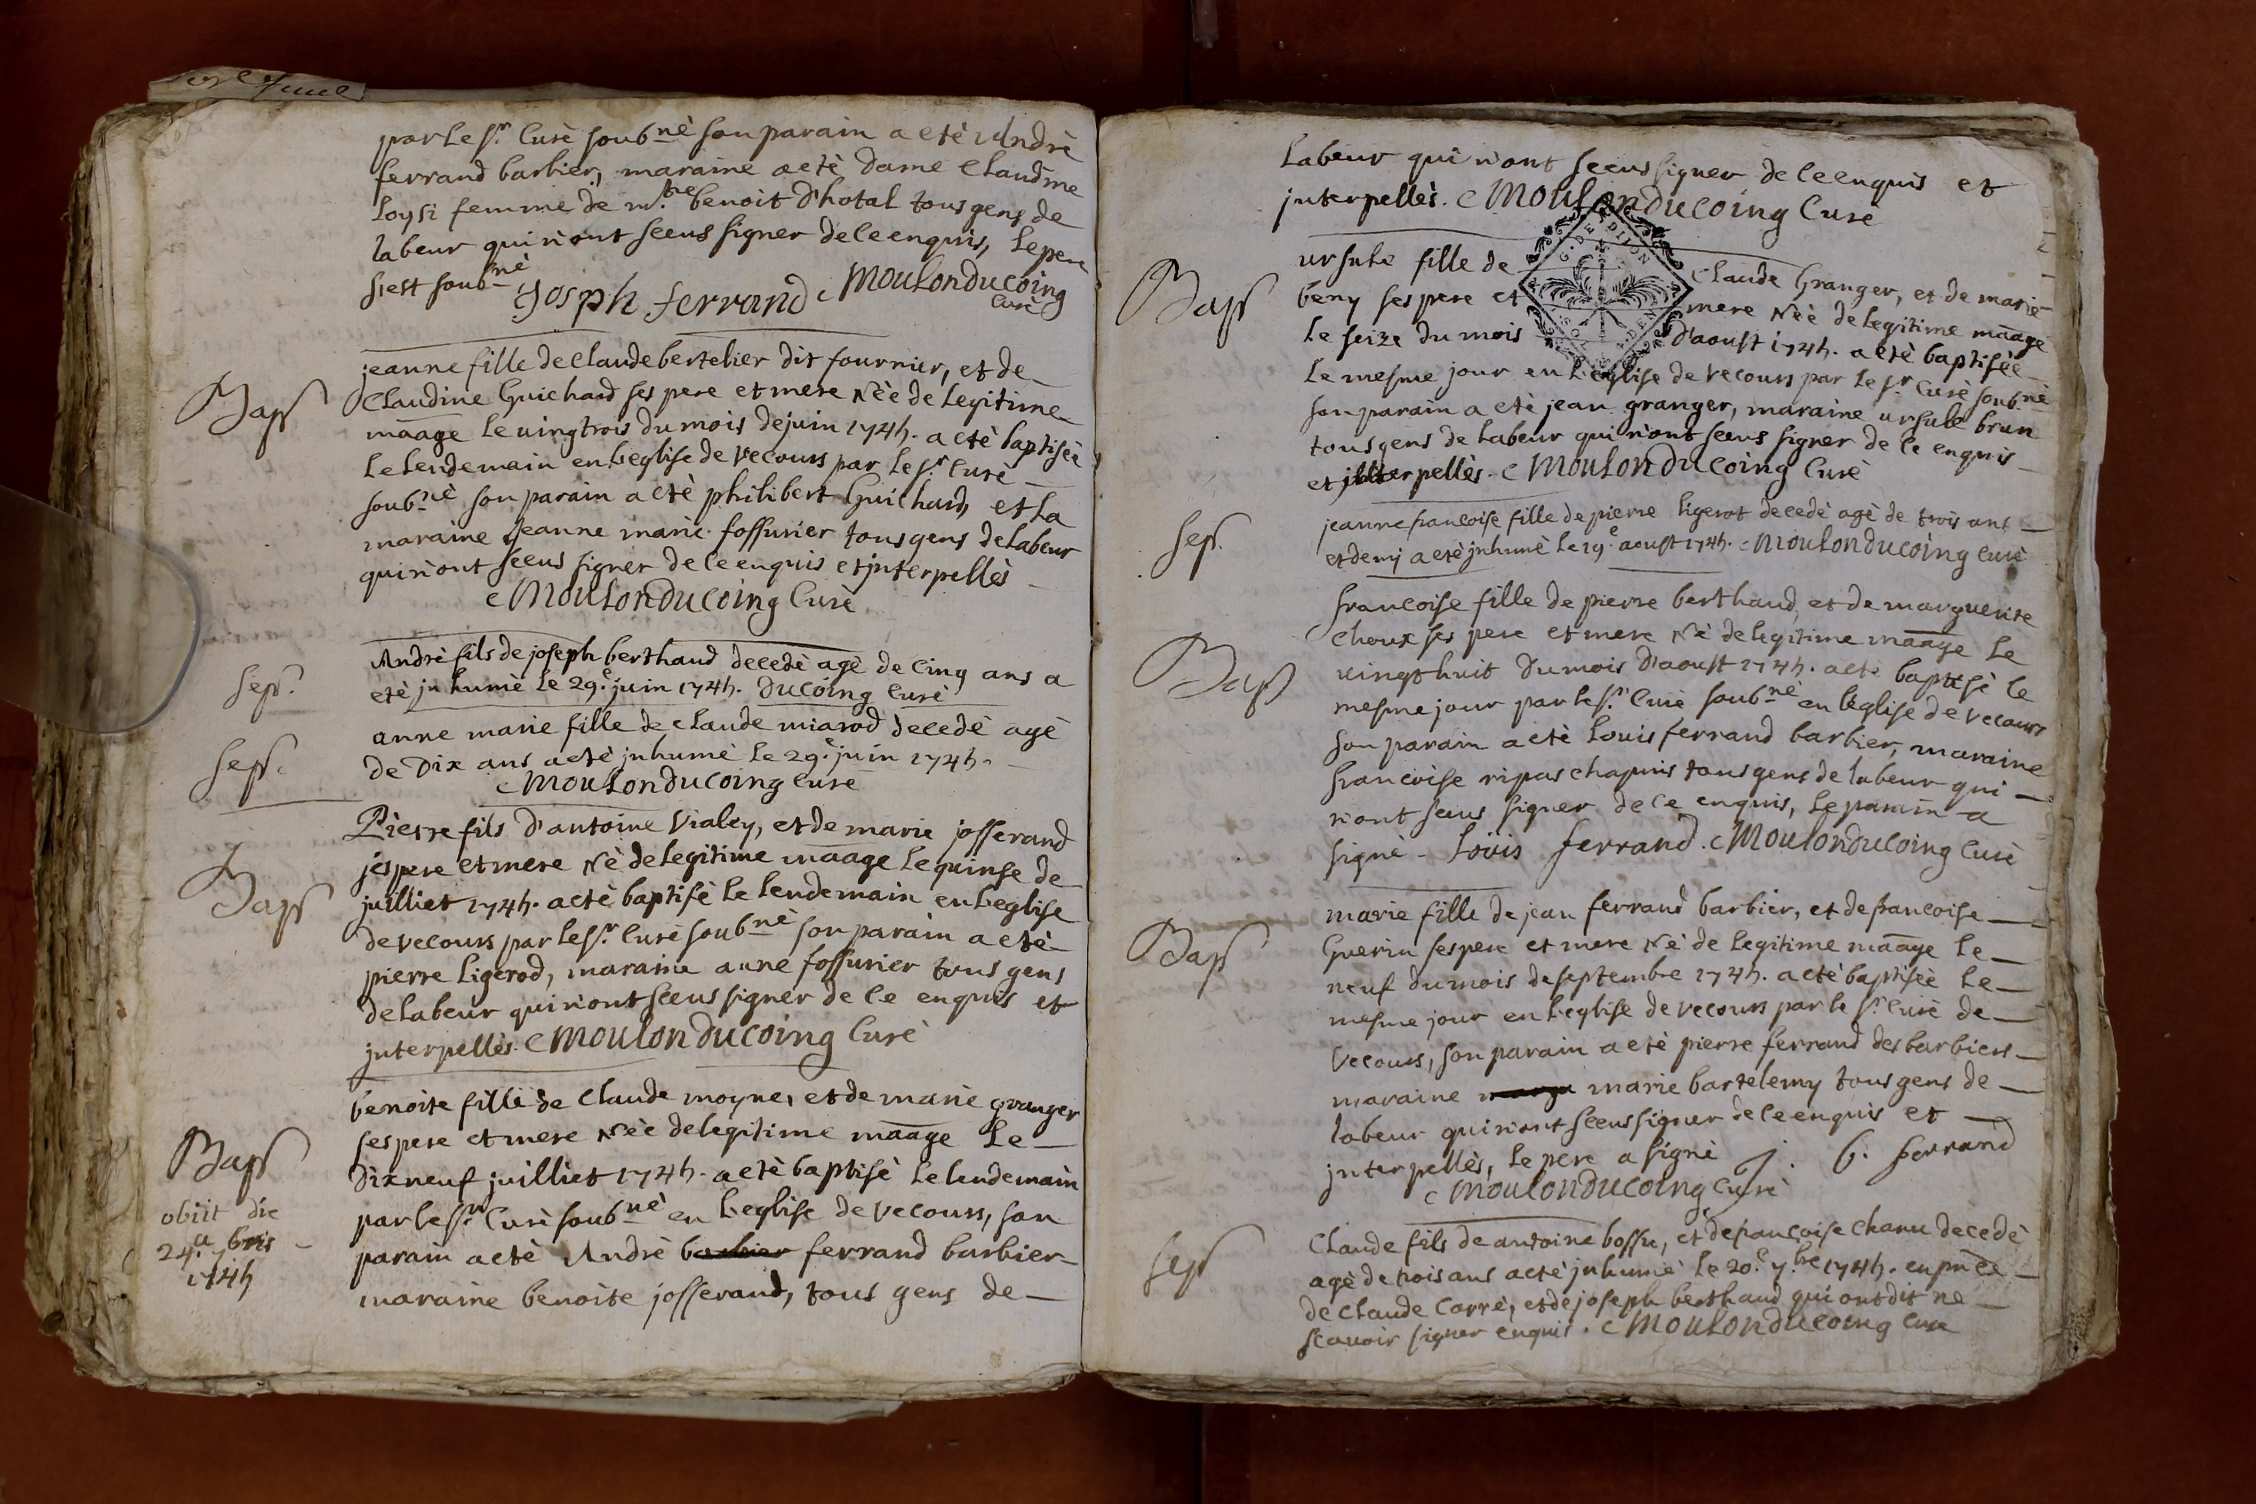 par le sr. Curè soubnè son parain a etè Andrè
ferrand barbier, maraine a etè Dame Claudine
Loysi femme de mtre benoit D'hotal tous gens de
labeur qui n'ont sceus signer de ce enquis, Le pere
s'est soubnè Josph ferrand Moulonducoing
Curè
jeanne fille de Claude bertelier dit fournier, et de
Bap
Claudine Guichard ses pere et mere Nèè de Legitime
maage Le vingtrois du mois de juin 1744. a etè baptisèè
Le Lendemain en L'eglise de Vecours par Le sr. Curè
soubnè son parain a etè philibert Guichard, et La
maraine jeanne marie fossurier tous gens de Labeur
qui n'ont sceus signer de ce enquis et jnterpellès
Moulonducoing Curè
Andrè fils de joseph berthaud decedè agè de Cinq ans a
sep.
etè jnhumè Le 29e. juin 1744. Ducoing Curè
anne marie fille de Claude miarod decedè agè
sep.
de Dix ans a etè jnhumè Le 29e. juin 1744.
Moulonducoing Curè
Pierre fils D'antoine Vialey, et de marie josserand
ses pere et mere Nè de Legitime maage Le quinse de
Bap
juilliet 1744. a etè baptisè Le Lendemain en L'eglise
de Vecours par Le sr. Curè soubnè son parain a etè
pierre Ligerod, maraine anne fossurier tous gens
de Labeur qui n'ont sceus signer de ce enquis et
jnterpellès. Moulonducoing Curè
benoite fille de Claude moyne, et de marie granger
Bap
ses pere et mere Nèè de legitime maage Le
Dixneuf juilliet 1744. a etè baptisè Le Lendemain
obiit die
par Le sr. Curè soubnè en L'eglise de Vecours, son
24a. bris
parain a etè Andrè barbier ferrand barbier
1744
maraine benoite josserand, tous gens de
Labeur qui n'ont sceus signer de ce enquis et
jnterpellès. Moulonducoing Curè
G. DE DIJON
ursule fille de Claude Granger, et de marie
Bap
beny ses pere et mere Nèè de Legitime maage
Le seize du mois D'aoust 1744. a etè baptisèè
Le mesme jour en L'eglise de Vecours par Le sr. Curè soubnè
son parain a etè jean granger, maraine ursule brun
tous gens de Labeur qui n'ont sceus signer de ce enquis
et jnterpellès. Moulonducoing Curè
jeanne francoise fille de pierre Ligerot decedè agè de trois ans
sep.
et demj a etè jnhumè Le 19e. aoust 1744. Moulonducoing Curè
francoise fille de pierre berthaud, et de marguerite
Choux ses pere et mere Nè de legitime maage Le
Bap
vingthuit du mois D'aoust 1744. a etè baptisè Le
mesme jour par Le sr. Curè soubnè en L'eglise de Vecours
son parain a etè Louis ferrand barbier, maraine
francoise ripas chapuis tous gens de labeur qui
n'ont sceus signer de ce enquis, Le parain a
signè - Louis ferrand. Moulonducoing Curè
marie fille de jean ferrand barbier, et de francoise
Bap
Guerin ses pere et mere Nè de legitime maage Le
neuf du mois de septembre 1744. a etè baptisèè Le
mesme jour en L'eglise de Vecours par Le sr. Curè de
Vecours, son parain a etè pierre ferrand des barbiers
maraine marie bartelemy tous gens de
labeur qui n'ont sceus signer de ce enquis et
jnterpellès, Le pere a signè J. b. ferrand
Moulonducoing Curè
Claude fils de antoine bossu, et de francoise Chanu decedè
sep
agè de trois ans a etè jnhumè Le 20e. 7bre 1744. en pnce
de Claude Carrè, et de joseph berthaud qui ont dit ne
scavoir signer enquis. Moulonducoing Cure